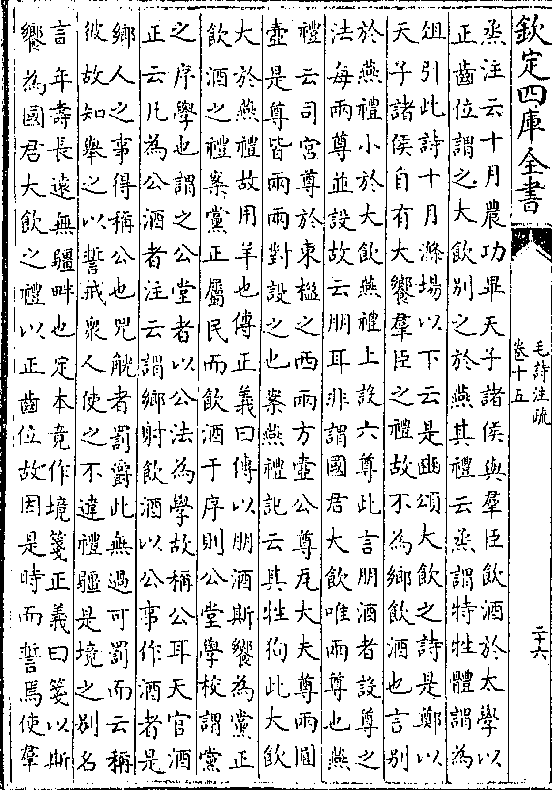 欽定四庫全書
毛詩注疏
卷十五
二十六
烝注云十月農功畢天子諸侯與羣臣飲酒於太學以
正齒位謂之大飲别之於燕其禮云烝謂特牲體謂為
俎引此詩十月滌場以下云是豳頌大飲之詩是鄭以
天子諸侯自有大饗羣臣之禮故不為鄉飲酒也言别
於燕禮小於大飲燕禮上設六尊此言朋酒者設尊之
法每兩尊並設故云朋耳非謂國君大飲唯兩尊也燕
禮云司宫尊於東楹之西兩方壺公尊瓦大夫尊兩圓
壺是尊皆兩兩對設之也案燕禮記云其牲狗此大飲
大於燕禮故用羊也傳正義曰傳以朋酒斯饗為黨正
飲酒之禮案黨正屬民而飲酒于序則公堂學校謂黨
之序學也謂之公堂者以公法為學故稱公耳天官酒
正云凡為公酒者注云謂鄉射飲酒以公事作酒者是
鄉人之事得稱公也兕觥者罰爵此無過可罰而云稱
彼故知舉之以誓戒衆人使之不違禮疆是境之别名
言年壽長遠無疆畔也定本竟作境箋正義曰箋以斯
饗為國君大飲之禮以正齒位故因是時而誓焉使羣